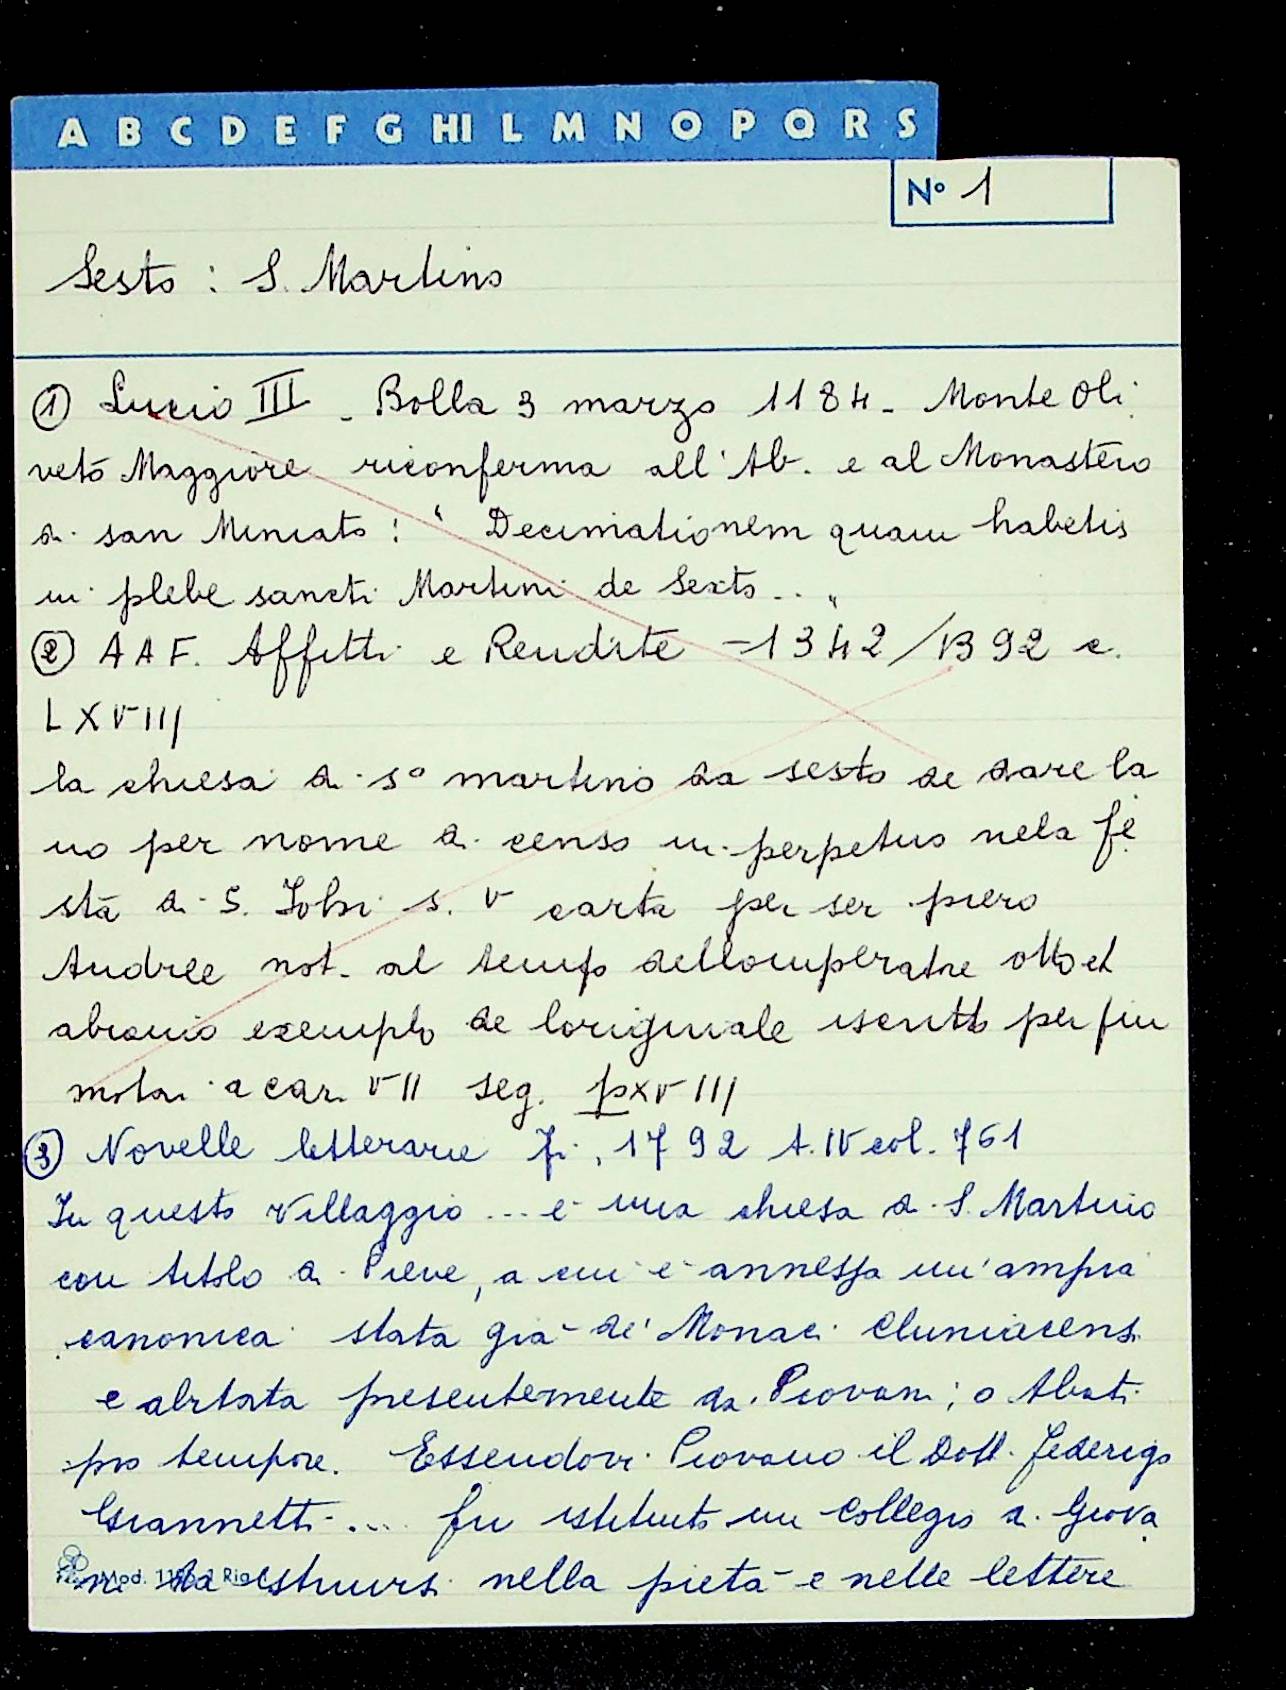 A B C D E F G HI L M N O P Q R S
Nº 1
Sesto : S. Martino
① Lucio III - Bolla 3 marzo 1184 - Monte Oli
veto Maggiore riconferma all'Ab. e al Monastero
di san Miniato : " Decimationem quam habetis
in plebe sancti Martini de Sexto .. "
② A A F. Affitti e Rendite - 1342/1392 c.
LXVIII
la chiesa di sº martino da sesto de dare la
no per nome di censo in perpetuo nela fe
sta di S. Johi s. V carta per ser piero
Andree not. al tempo dellomperatre otto et
abiamo exemplo de loriginale iscritto per piu
notai a car. VII seg. pXVIII
③ Novelle letterarie Fi, 1792 t. IV col. 761
In questo Villaggio ... è una chiesa di S. Martino
con titolo di Pieve, a cui è annessa un'ampia
canonica stata già de' Monaci Cluniacensi
e abitata presentemente da Piovani, o Abati
pro tempore. Essendovi Piovano il Dott. Federigo
Giannetti ... fu istituito un Collegio di Giova
ni da istruirsi nella pietà e nelle lettere